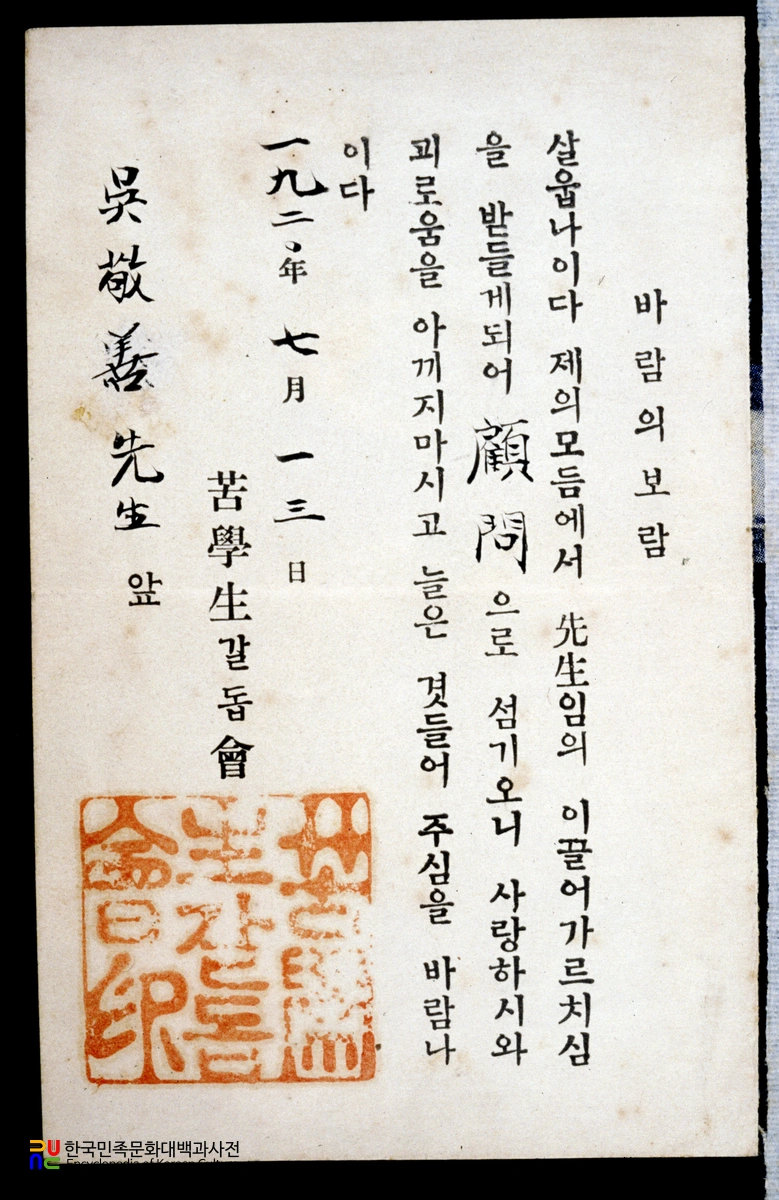 바람의보람
살웁나이다 제의모듬에서 先生임의 이끌어가르치심
을 받들게되어 顧問 으로 섬기오니 사랑하시와
괴로움을 아끼지마시고 늘은 겻들어 주심을 바람나
이다
一九二〇年 七月 一三日
苦學生갈돕會
吳敬善 先生 앞
苦學
生갈돕
會印
한국민족문화대백과사전
Encyclopedia of Korean Cult